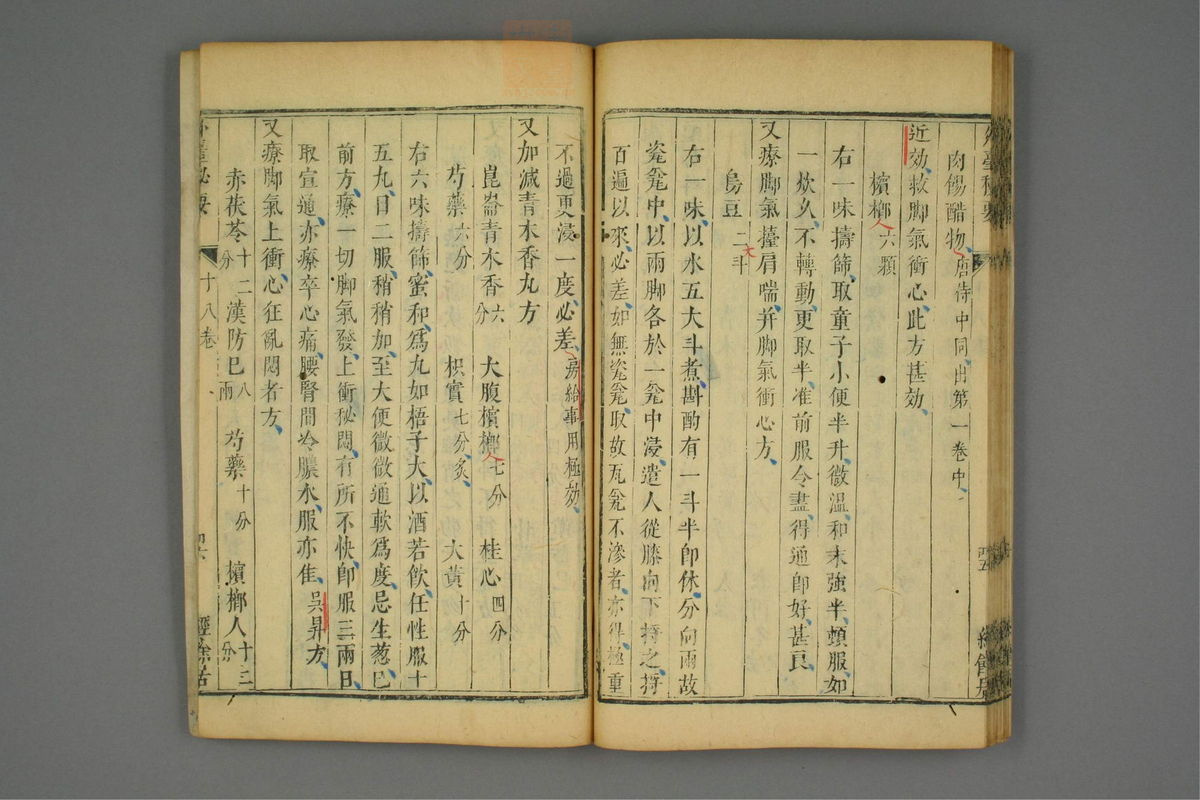 肉餳醋物唐侍中同出第一卷中
近効救脚氣衝心此方甚効
檳榔人六顆
右一味擣篩取童子小便半升微溫和末強半頓服如
一炊久不轉動更取半准前服令盡得通卽好甚良
又療脚氣擡肩喘并脚氣衝心方
烏豆二大斗
右一味以水五大斗煮斟酌有一斗半卽休分向兩故
瓷瓮中以兩脚各於一瓮中浸遣人從膝向下捋之捋
百遍以來必差如無瓷瓮取故瓦瓮不滲者亦得極重
不過更浸一度必差房給事用極効
又加減青木香丸方
崑崙青木香六分 大腹檳榔人七分 桂心四分
芍藥六分 枳實七分炙 大黃十分
右六味擣篩蜜和爲丸如梧子大以酒若飮任性服十
五丸日二服稍稍加至大便微微通軟爲度忌生葱巳
前方療一切脚氣發上衝秘悶有所不快卽服三兩日
取宣通亦療卒心痛腰腎間冷膿水服亦佳吳昇方
又療脚氣上衝心狂亂悶者方
赤茯苓十二分 漢防巳八兩 芍藥十分 檳榔人十三分
外臺秘要 十八卷